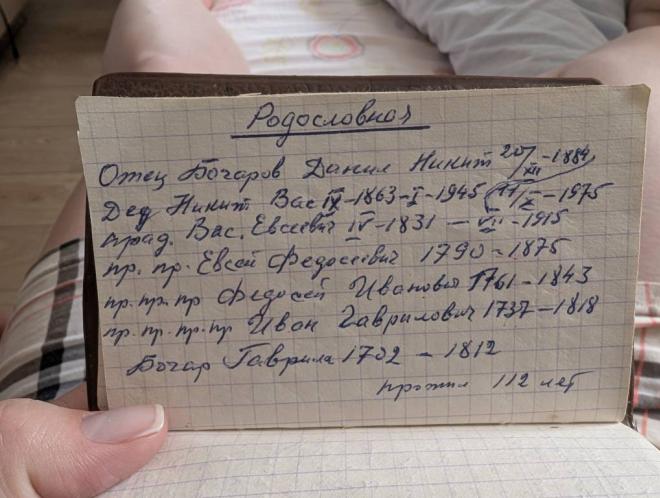 Родословная
Отец Бочаров Данил Никит 20/XII-1884
Дед Никит Вас IX-1863-I-1945 (11/X-1975
прад. Вас. Евсеевич IV-1831 - VII-1915
пр. пр. Евсей Федосеевич 1790-1875
пр. пр. пр Федосей Иванович 1761-1843
пр. пр. пр. пр Иван Гаврилович 1737-1818
Бочар Гаврила 1702 - 1812
прожил 112 лет